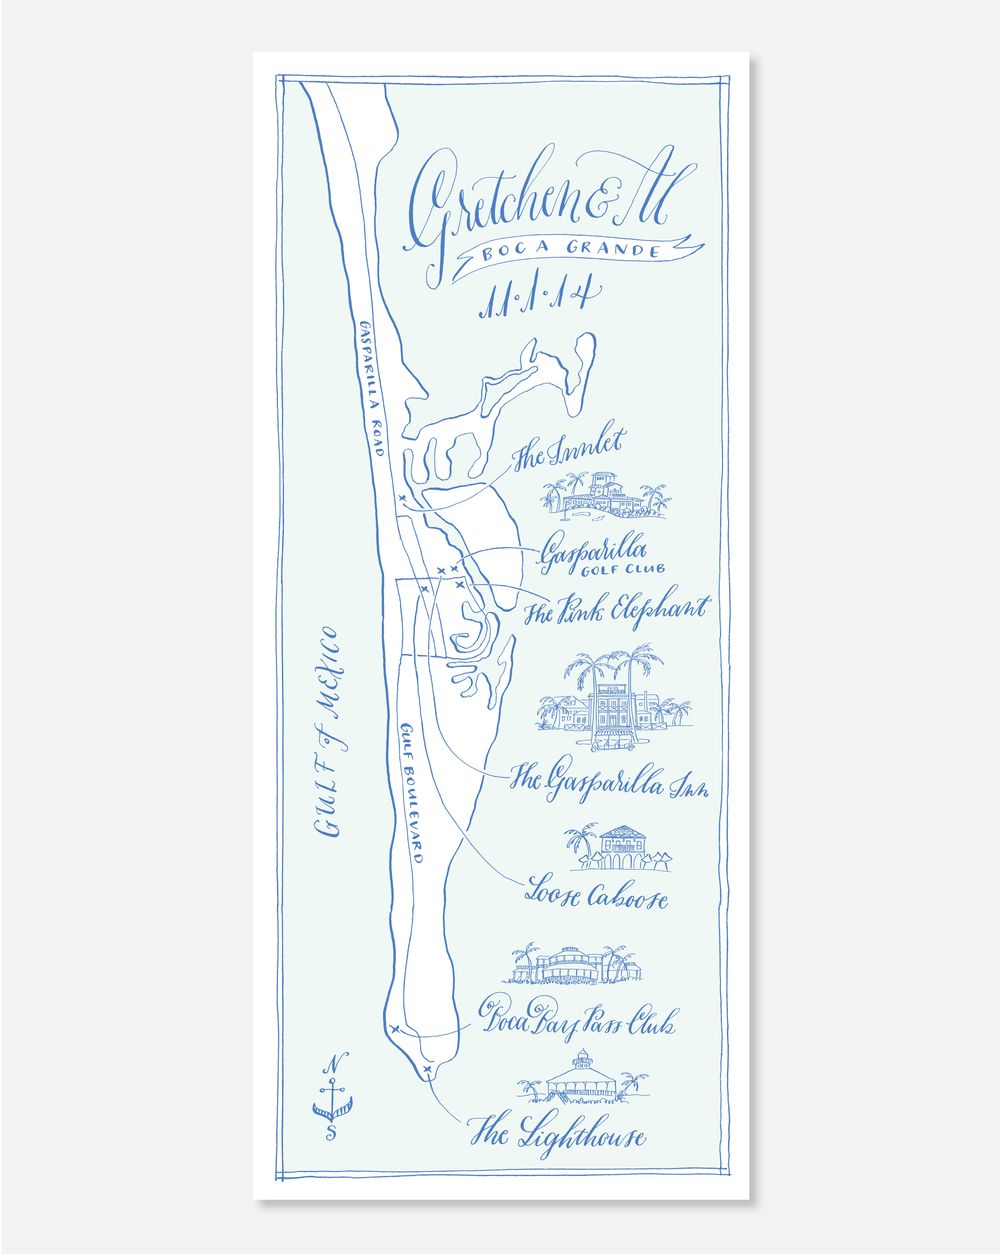 Gretchen & Al
BOCA GRANDE
11·1·14
GASPARILLA ROAD
The Innlet
Gasparilla
GOLF CLUB
The Pink Elephant
GULF of MEXICO
GULF BOULEVARD
The Gasparilla Inn
Loose Caboose
Boca Bay Pass Club
The Lighthouse
N
S